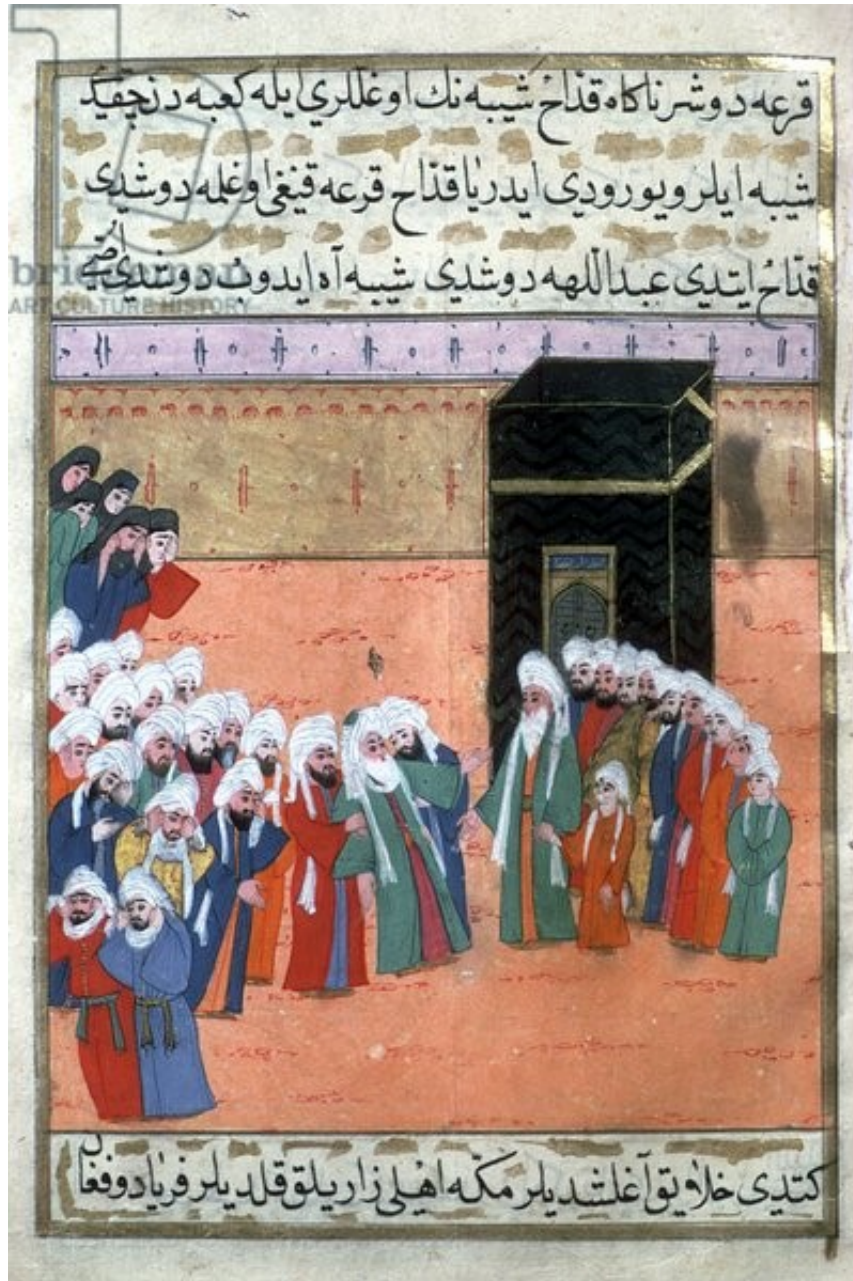 قرعه دوشر ناكاه قداح شيبه نك اوغللري ايله كعبه دن چقيد
شيبه ايلرو يورودي ايدر يا قداح قرعه قنيغي اوغلمه دوشدي
قداح ايتدي عبد اللهه دوشدي شيبه آه ايدوب دوشدي
bridgeman
ART CULTURE HISTORY
كتدي خلايق آغلشديلر مكه اهلي زاريلق قلديلر فرياد و فغان